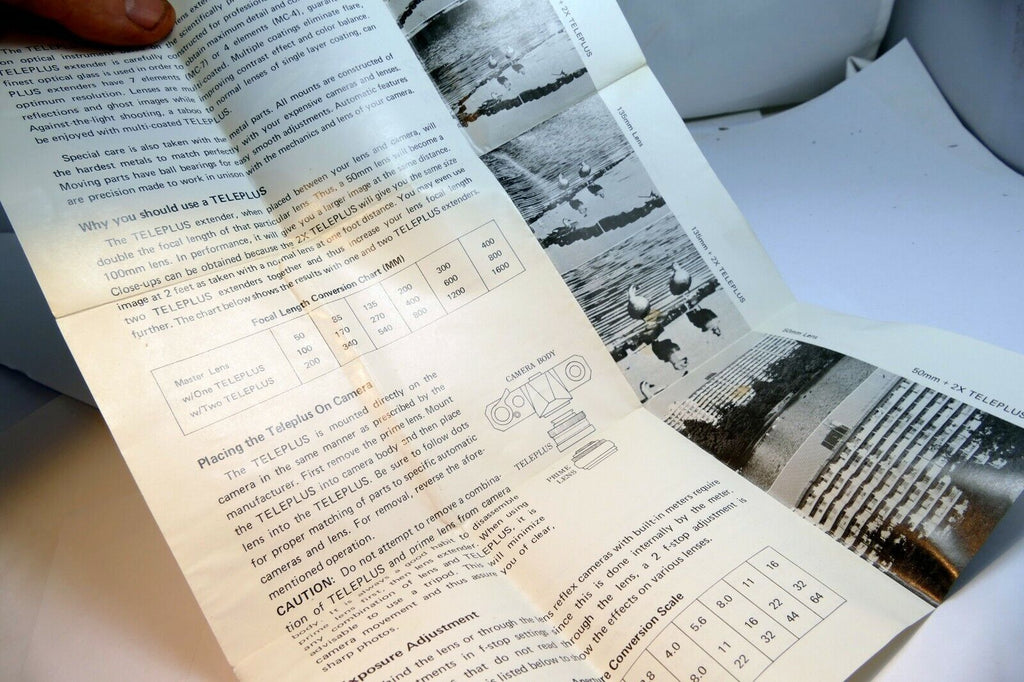 scientifically
on optical instrument
constructed for professional
TELEPLUS extender is carefully
obtain maximum detail and
finest optical glass is used in order to
or 4 elements (MC-4),
PLUS extenders have 7 elements
coated. Multiple coatings eliminate flare,
optimum resolution. Lenses are
improving contrast effect and color balance.
reflections and ghost images while
normal lenses of single layer coating, can
Against-the-light shooting, a taboo to
be enjoyed with multi-coated TELEPLUS.
Special care is also taken with the metal parts. All mounts are constructed of
the hardest metals to match perfectly with your expensive cameras and lenses.
Moving parts have ball bearings for easy smooth adjustments. Automatic features
are precision made to work in unison with the mechanics and lens of your camera.
Why you should use a TELEPLUS
The TELEPLUS extender, when placed between your lens and camera, will
double the focal length of that particular lens. Thus, a 50mm lens will become a
100mm lens. In performance, it will give you a larger image at the same distance.
Close-ups can be obtained because the 2X TELEPLUS will give you the same size
image at 2 feet as taken with a normal lens at one foot distance. You may even use
two TELEPLUS extenders together and thus increase your lens focal length
further. The chart below shows the results with one and two TELEPLUS extenders.
Focal Length Conversion Chart (MM)
Master Lens 50 85 135 200 300 400
w/One TELEPLUS 100 170 270 400 600 800
w/Two TELEPLUS 200 340 540 800 1200 1600
Placing the Teleplus On Camera
The TELEPLUS is mounted directly on the
camera in the same manner as prescribed by the
manufacturer. First remove the prime lens. Mount
the TELEPLUS into camera body and then place
lens into the TELEPLUS. Be sure to follow dots
for proper matching of parts to specific automatic
cameras and lens. For removal, reverse the afore-
mentioned operation.
CAUTION: Do not attempt to remove a combina-
tion of TELEPLUS and prime lens from camera
body. It is always a good habit to disassemble
prime lens first, then lens extender. When using
any combination of lens and TELEPLUS, it is
advisable to use a tripod. This will minimize
camera movement and thus assure you of clear,
sharp photos.
CAMERA BODY
TELEPLUS
PRIME
LENS
xposure Adjustment
reflex cameras with built-in meters require
hind the lens or through the lens
since this is done internally by the meter.
tments in f-stop settings
through the lens, a 2 f-stop adjustment is
that do not read
is listed below to show the effects on various lenses.
Conversion Scale
4.0 5.6 8.0 11 16
8.0 11 16 22 32
22 32 44 64
+ 2X TELEPLUS
135mm Lens
135mm + 2X TELEPLUS
50mm Lens
50mm + 2X TELEPLUS